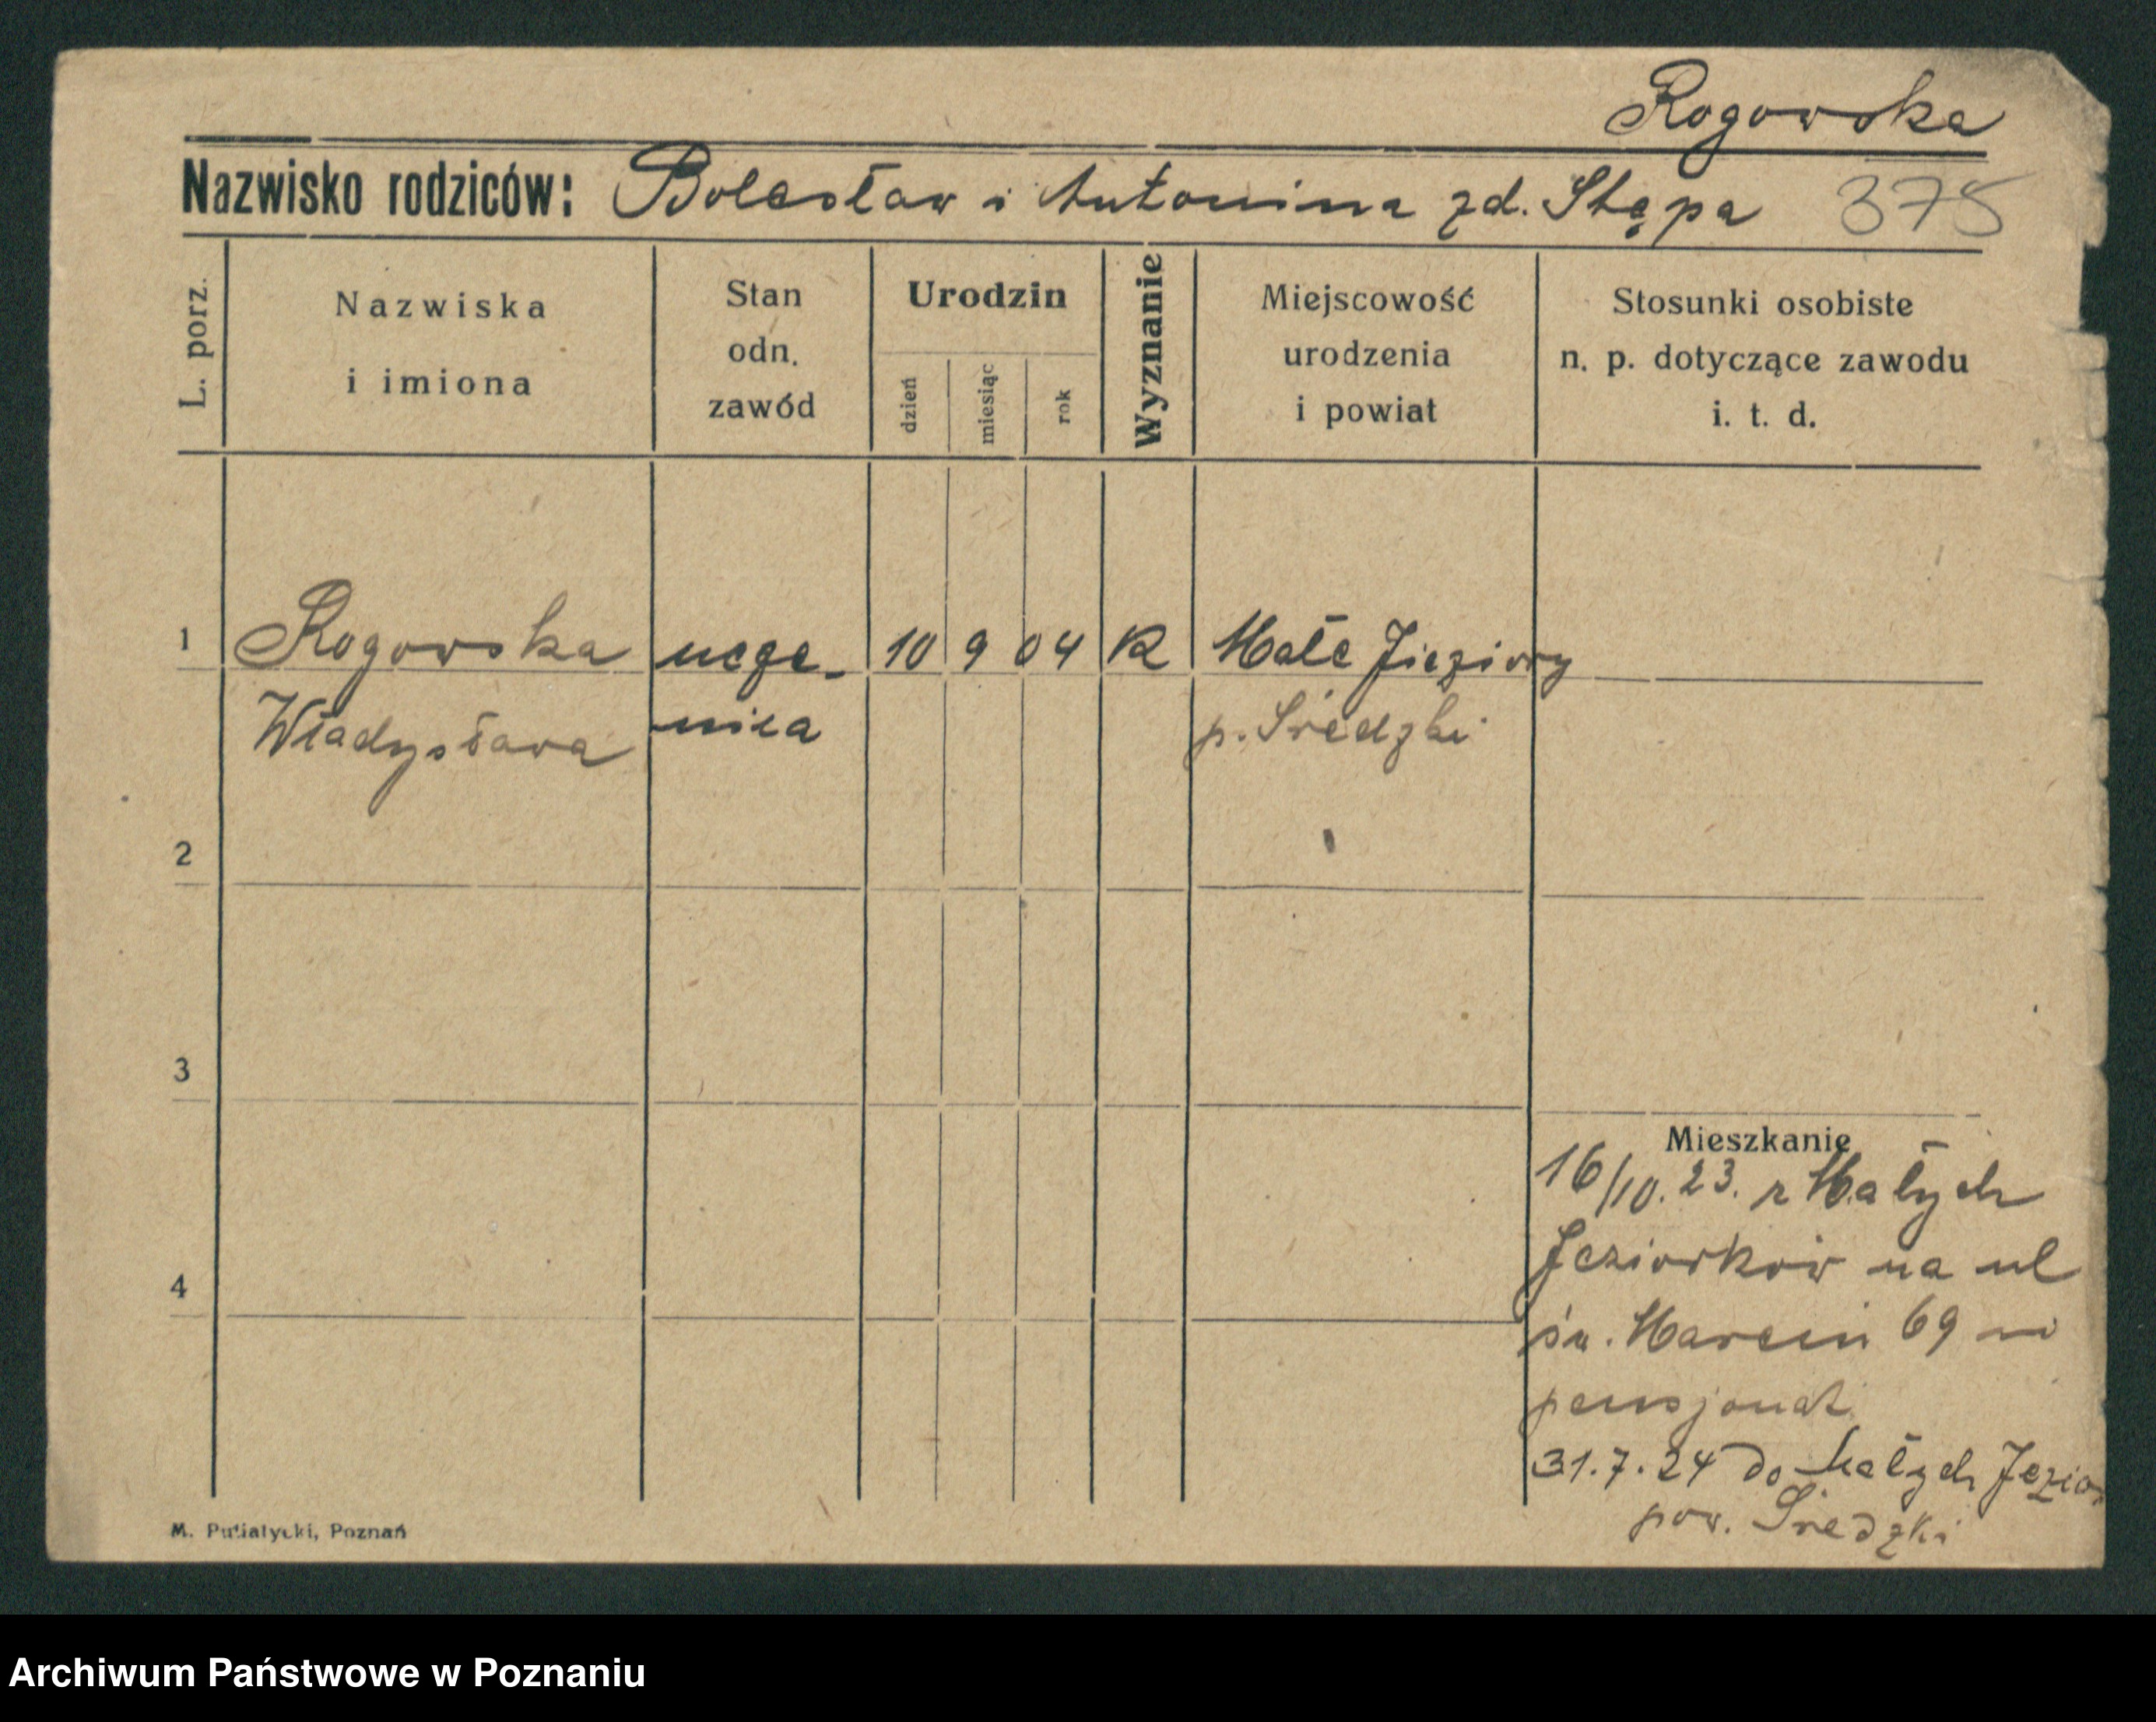 Rogowska
Nazwisko rodziców: Bolesław i Antonina zd. Stępa 375
L. porz.
Nazwiska
i imiona
Stan
odn.
zawód
Urodzin
dzień
miesiąc
rok
Wyznanie
Miejscowość
urodzenia
i powiat
Stosunki osobiste
n. p. dotyczące zawodu
i. t. d.
1 Rogowska ucze- 10 9 04 K Małe Jieziory
Władysława nica p. Średzki
2
3
4
Mieszkanie
16/10.23. z Małych
Jeziorków na ul
św. Marcin 69
pensjonat
31.7.24 do Małych Jezior
pow. Średzki
M. Putiatycki, Poznań
Archiwum Państwowe w Poznaniu